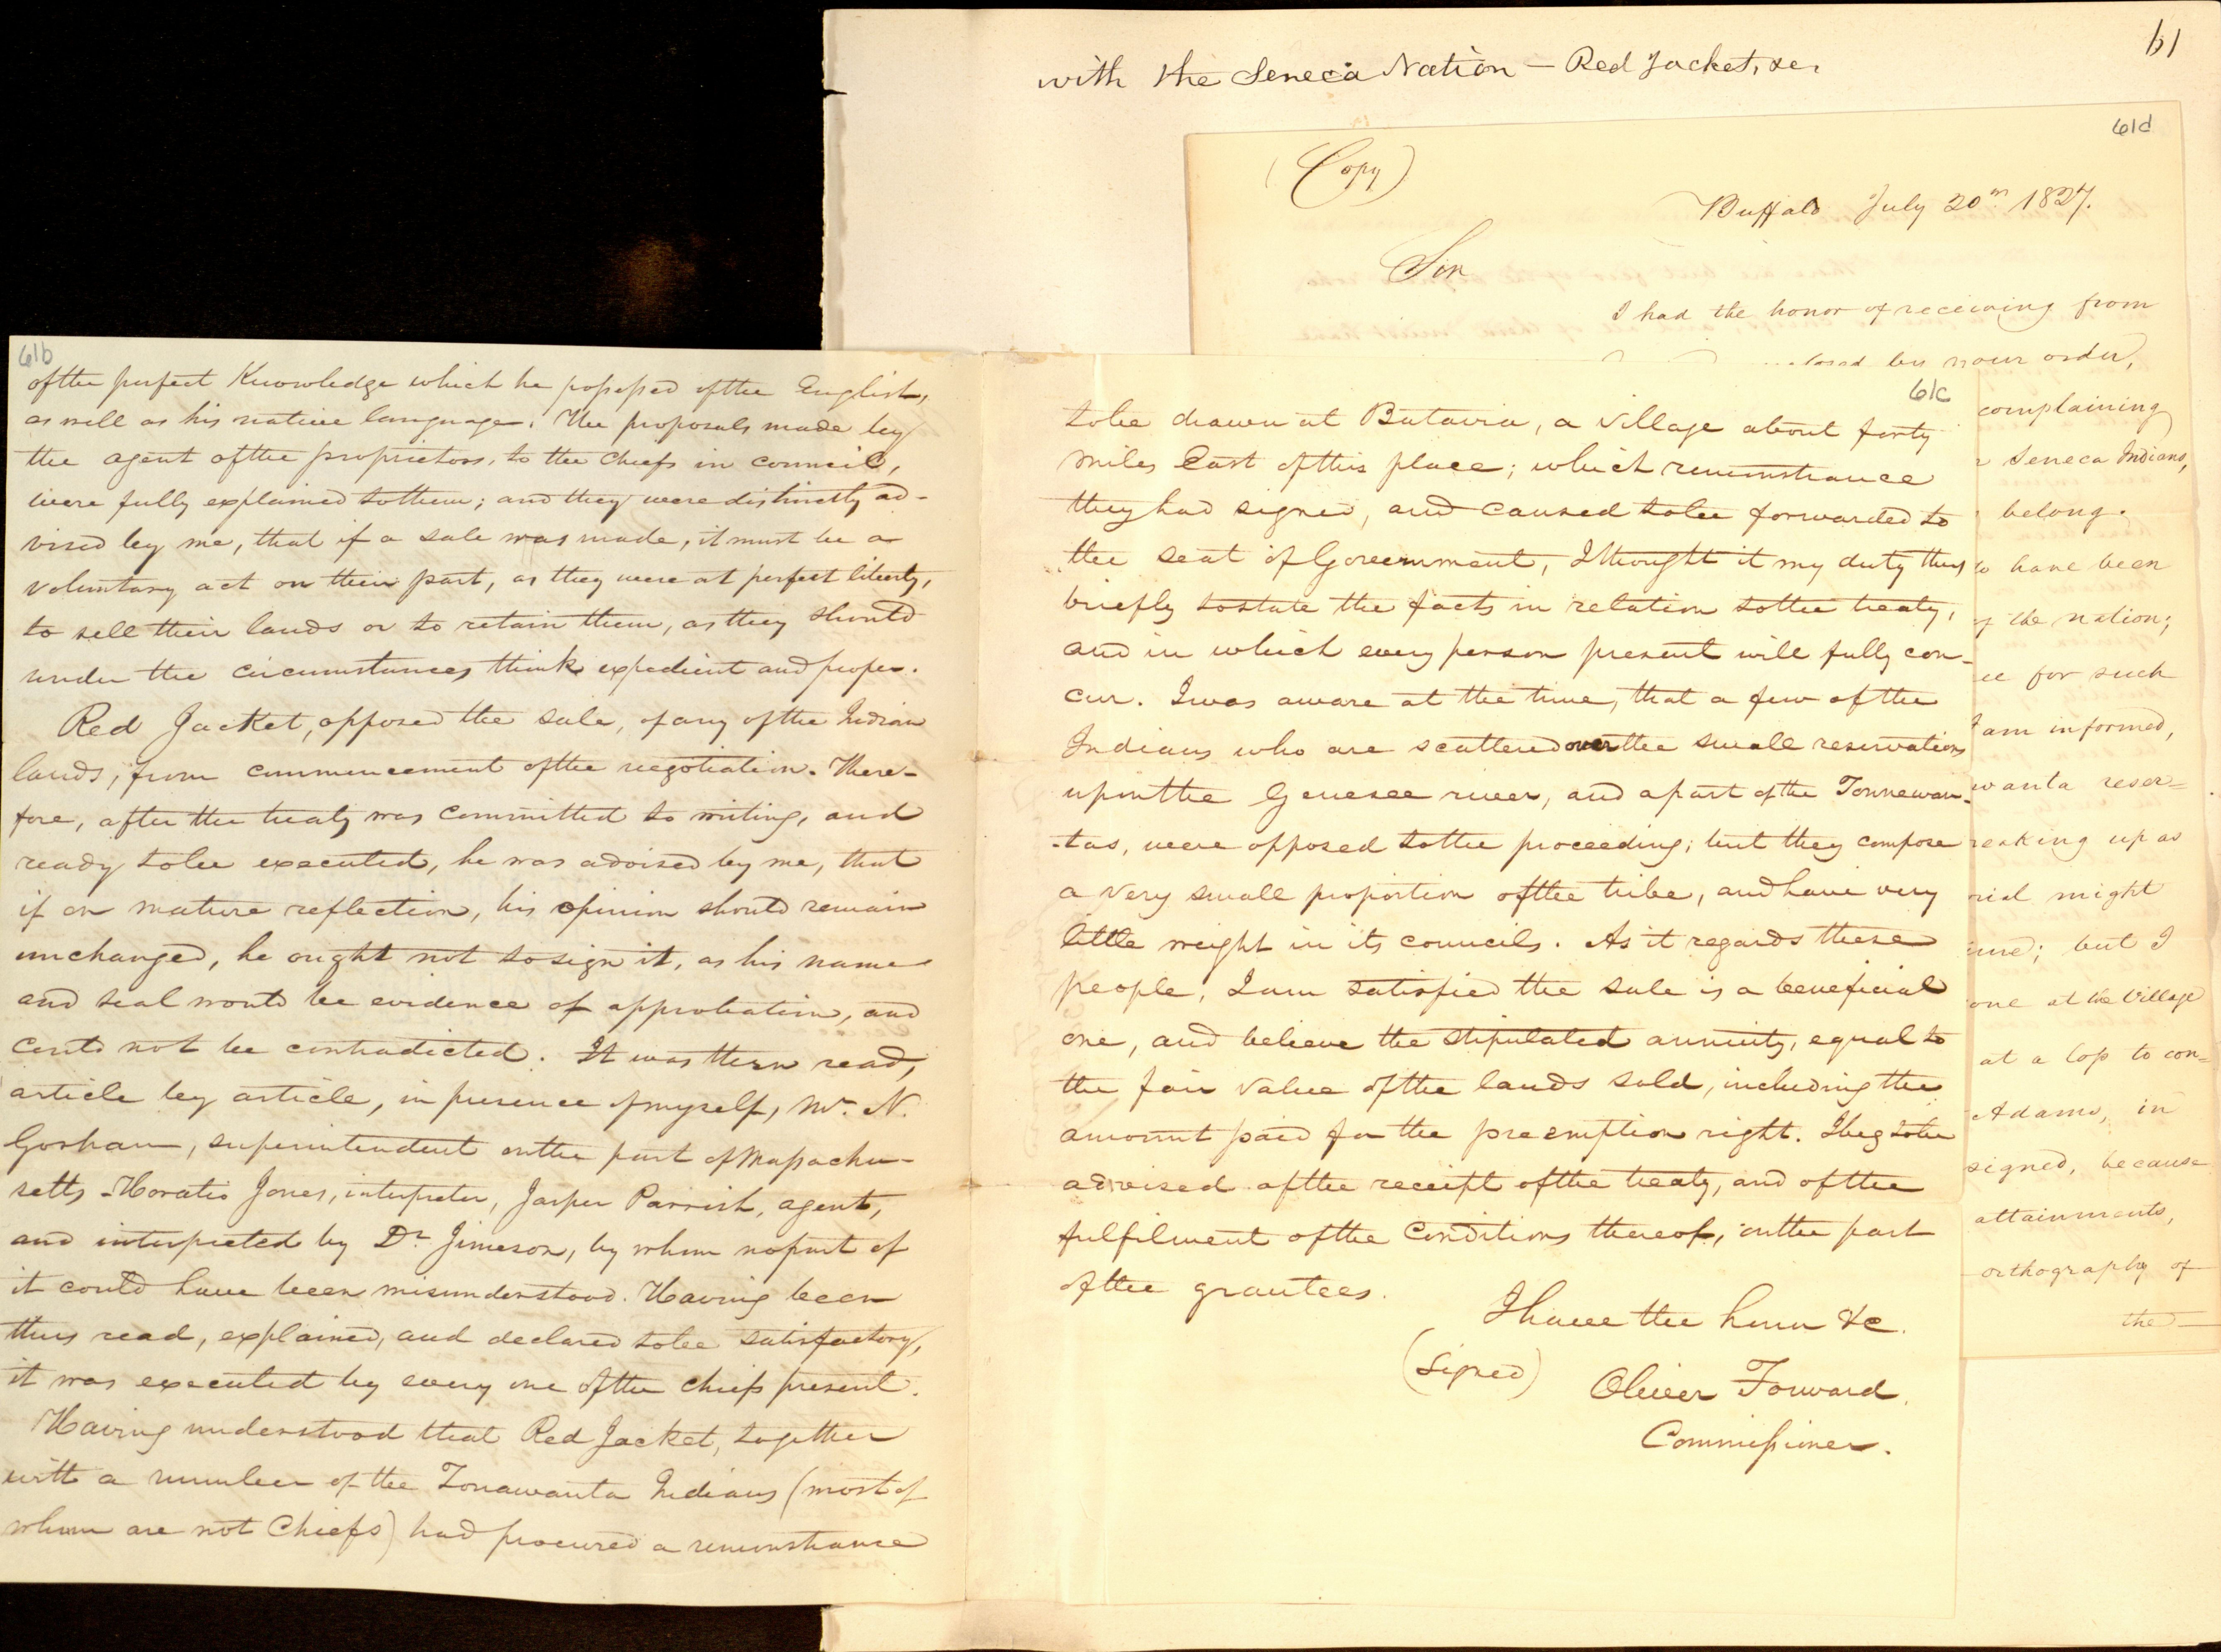 61
with the Seneca Nation — Red Jacket, &c.
61d
(Copy)
Buffalo July 20th 1827.
Sir
I had the honor of receiving from
by your order,
61b
of the perfect Knowledge which he possessed of the English,
as well as his native language. The proposals made by
the agent of the proprietors, to the Chiefs in council,
were fully explained to them; and they were distinctly ad-
vised by me, that if a sale was made, it must be a
voluntary act on their part, as they were at perfect liberty,
to sell their lands or to retain them, as they should
under the circumstances think expedient and proper.
Red Jacket, opposed the sale, of any of the Indian
lands, from commencement of the negotiation. There-
fore, after the treaty was committed to writing, and
ready to be executed, he was advised by me, that
if on mature reflection, his opinion should remain
unchanged, he ought not to sign it, as his name
and seal would be evidence of approbation, and
could not be contradicted. It was then read,
article by article, in presence of myself, Mr. N.
Gorham, superintendent on the part of Massachu-
setts - Horatio Jones, interpreter, Jasper Parrish, agent,
and interpreted by Dr. Jimeson, by whom no part of
it could have been misunderstood. Having been
thus read, explained, and declared to be satisfactory,
it was executed by every one of the chiefs present.
Having understood that Red Jacket, together
with a number of the Tonawanta Indians (most of
whom are not Chiefs) had procured a remonstrance
61c
to be drawn at Batavia, a village about forty
miles East of this place; which remonstrance
they had signed, and caused to be forwarded to
the seat of Government, I thought it my duty thus
briefly to state the facts in relation to the treaty,
and in which every person present will fully con-
cur. I was aware at the time, that a few of the
Indians who are scattered over the small reservations
upon the Genesee river, and a part of the Tonnewan-
-tas, were opposed to the proceeding; but they compose
a very small proportion of the tribe, and have very
little weight in its councils. As it regards these
people, I am satisfied the sale is a beneficial
one, and believe the stipulated annuity, equal to
the fair value of the lands sold, including the
amount paid for the preemption right. I beg to be
advised of the receipt of the treaty, and of the
fulfilment of the conditions thereof, on the part
of the grantees.
I have the honor &c.
(Signed) Oliver Forward.
Commissioner.
complaining
Seneca Indians,
belong.
to have been
the nation;
for such
I am informed,
wanta reser=
reaking up as
might
but I
one at the Village
at a loss to con=
Adams, in
signed, because
attainments,
orthography of
the